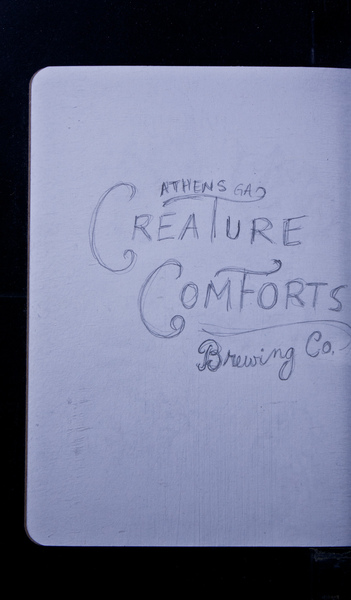 ATHENS GA
CREATURE
COMFORTS
Brewing Co.